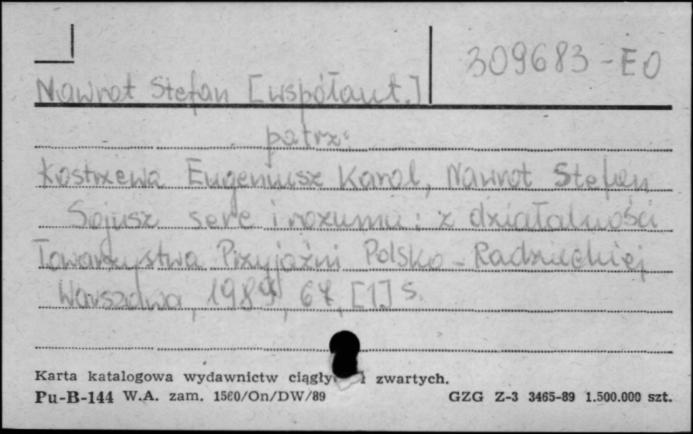 309683-EO
Nawrot Stefan [współaut.]
patrz:
Kostrzewa Eugeniusz Karol, Nawrot Stefan
Sojusz serc i rozumu : z działalności
Towarzystwa Przyjaźni Polsko-Radzieckiej
Warszawa, 1989, 67, [1] s.
Karta katalogowa wydawnictw zwartych.
Pu-B-144 W.A. zam. 1560/On/DW/89 GZG Z-3 3465-89 1.500.000 szt.